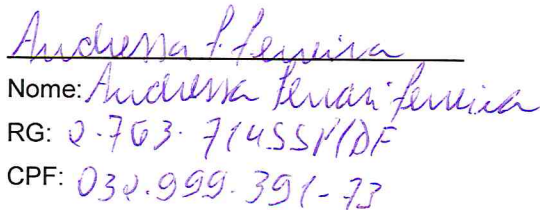 Andressa F. Ferreira
Nome: Andressa Ferrari Ferreira
RG: 2.763.714 SSP/DF
CPF: 032.999.391-73